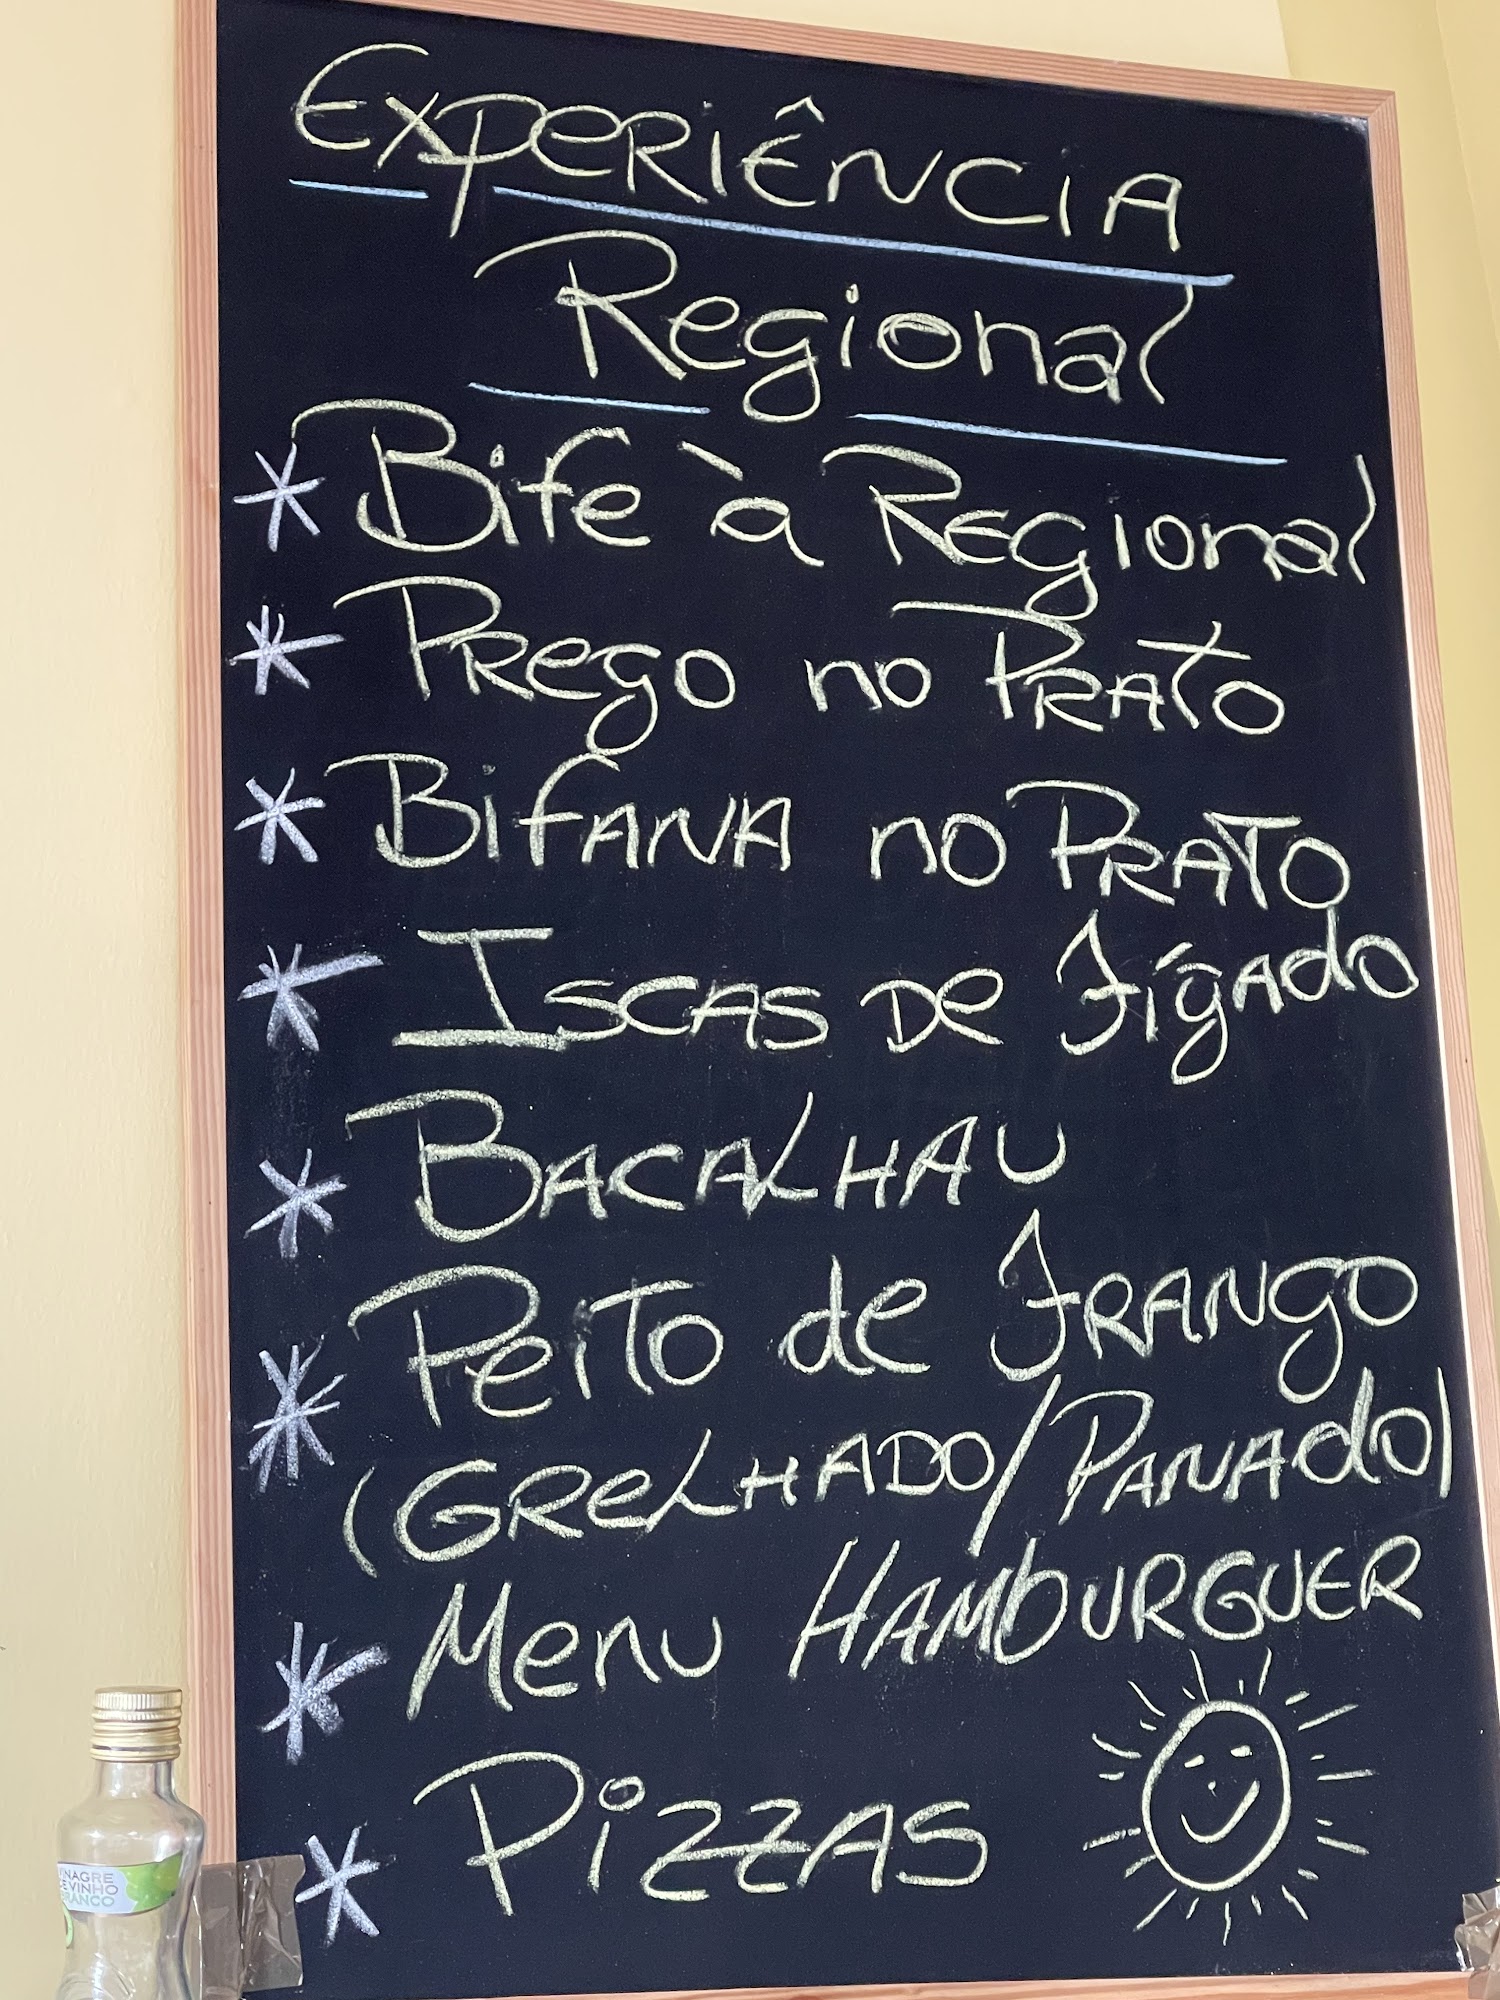 Experiência
Regional
* Bife à Regional
* Prego no Prato
* Bifana no Prato
* Iscas de Fígado
* Bacalhau
* Peito de Frango
(Grelhado/Panado)
* Menu Hamburguer
* Pizzas
VINAGRE
DE VINHO
BRANCO